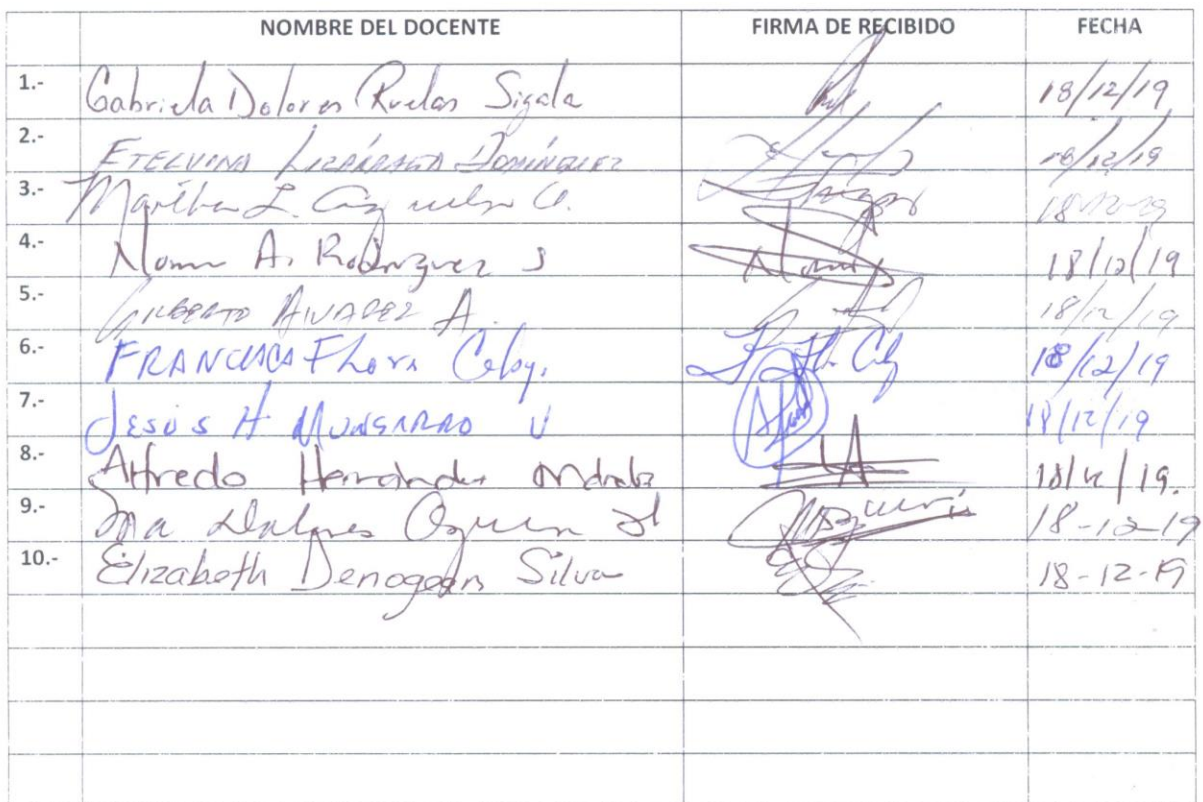 NOMBRE DEL DOCENTE FIRMA DE RECIBIDO FECHA
1.- Gabriela Dolores Ruelas Sigala 18/12/19
2.- ETELVINA LIZÁRRAGA DOMÍNGUEZ 18/12/19
3.- Martha L.
4.- Norma A. Rodriguez S 18/12/19
5.- GILBERTO ALVAREZ A. 18/12/19
6.- FRANCISCA Flores 18/12/19
7.- JESÚS H MUNGARRO V 18/12/19
8.- Alfredo Hernandez 18/12/19.
9.- Ma Dolores 18-12-19
10.- Elizabeth Denogean Silva 18-12-19